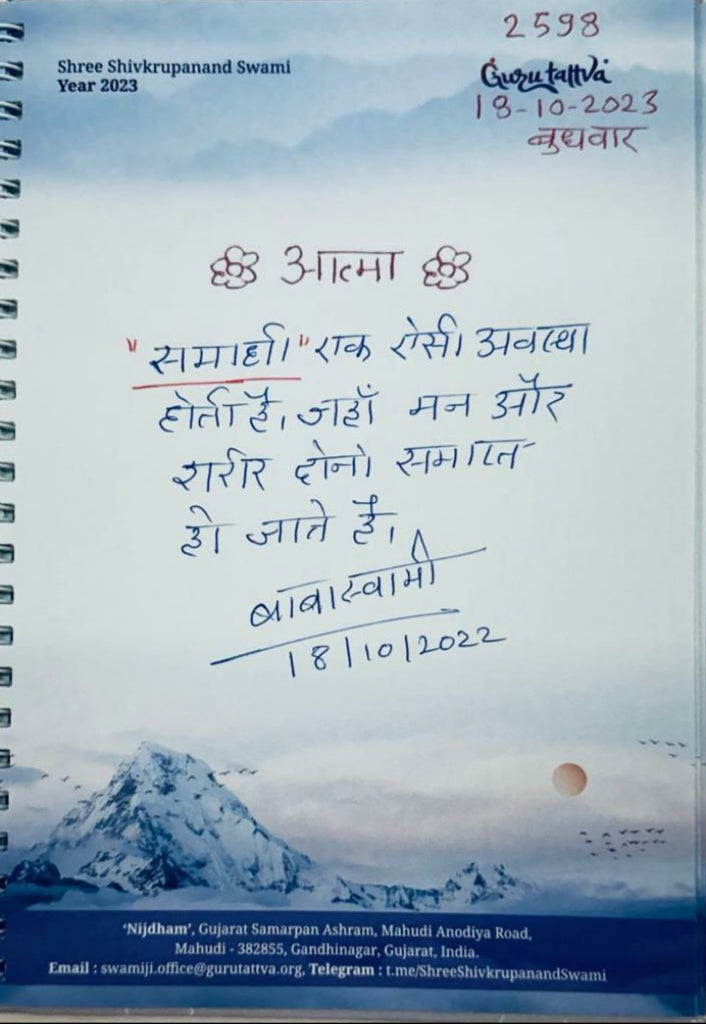 2598
Shree Shivkrupanand Swami
Year 2023
Gurutattva
18-10-2023
बुधवार
आत्मा
"समाधी" एक ऐसी अवस्था
होती है, जहाँ मन और
शरीर दोनो समाप्त
हो जाते है।
बाबास्वामी
18/10/2022
'Nijdham', Gujarat Samarpan Ashram, Mahudi Anodiya Road,
Mahudi - 382855, Gandhinagar, Gujarat, India.
Email : swamiji.office@gurutattva.org, Telegram : t.me/ShreeShivkrupanandSwami